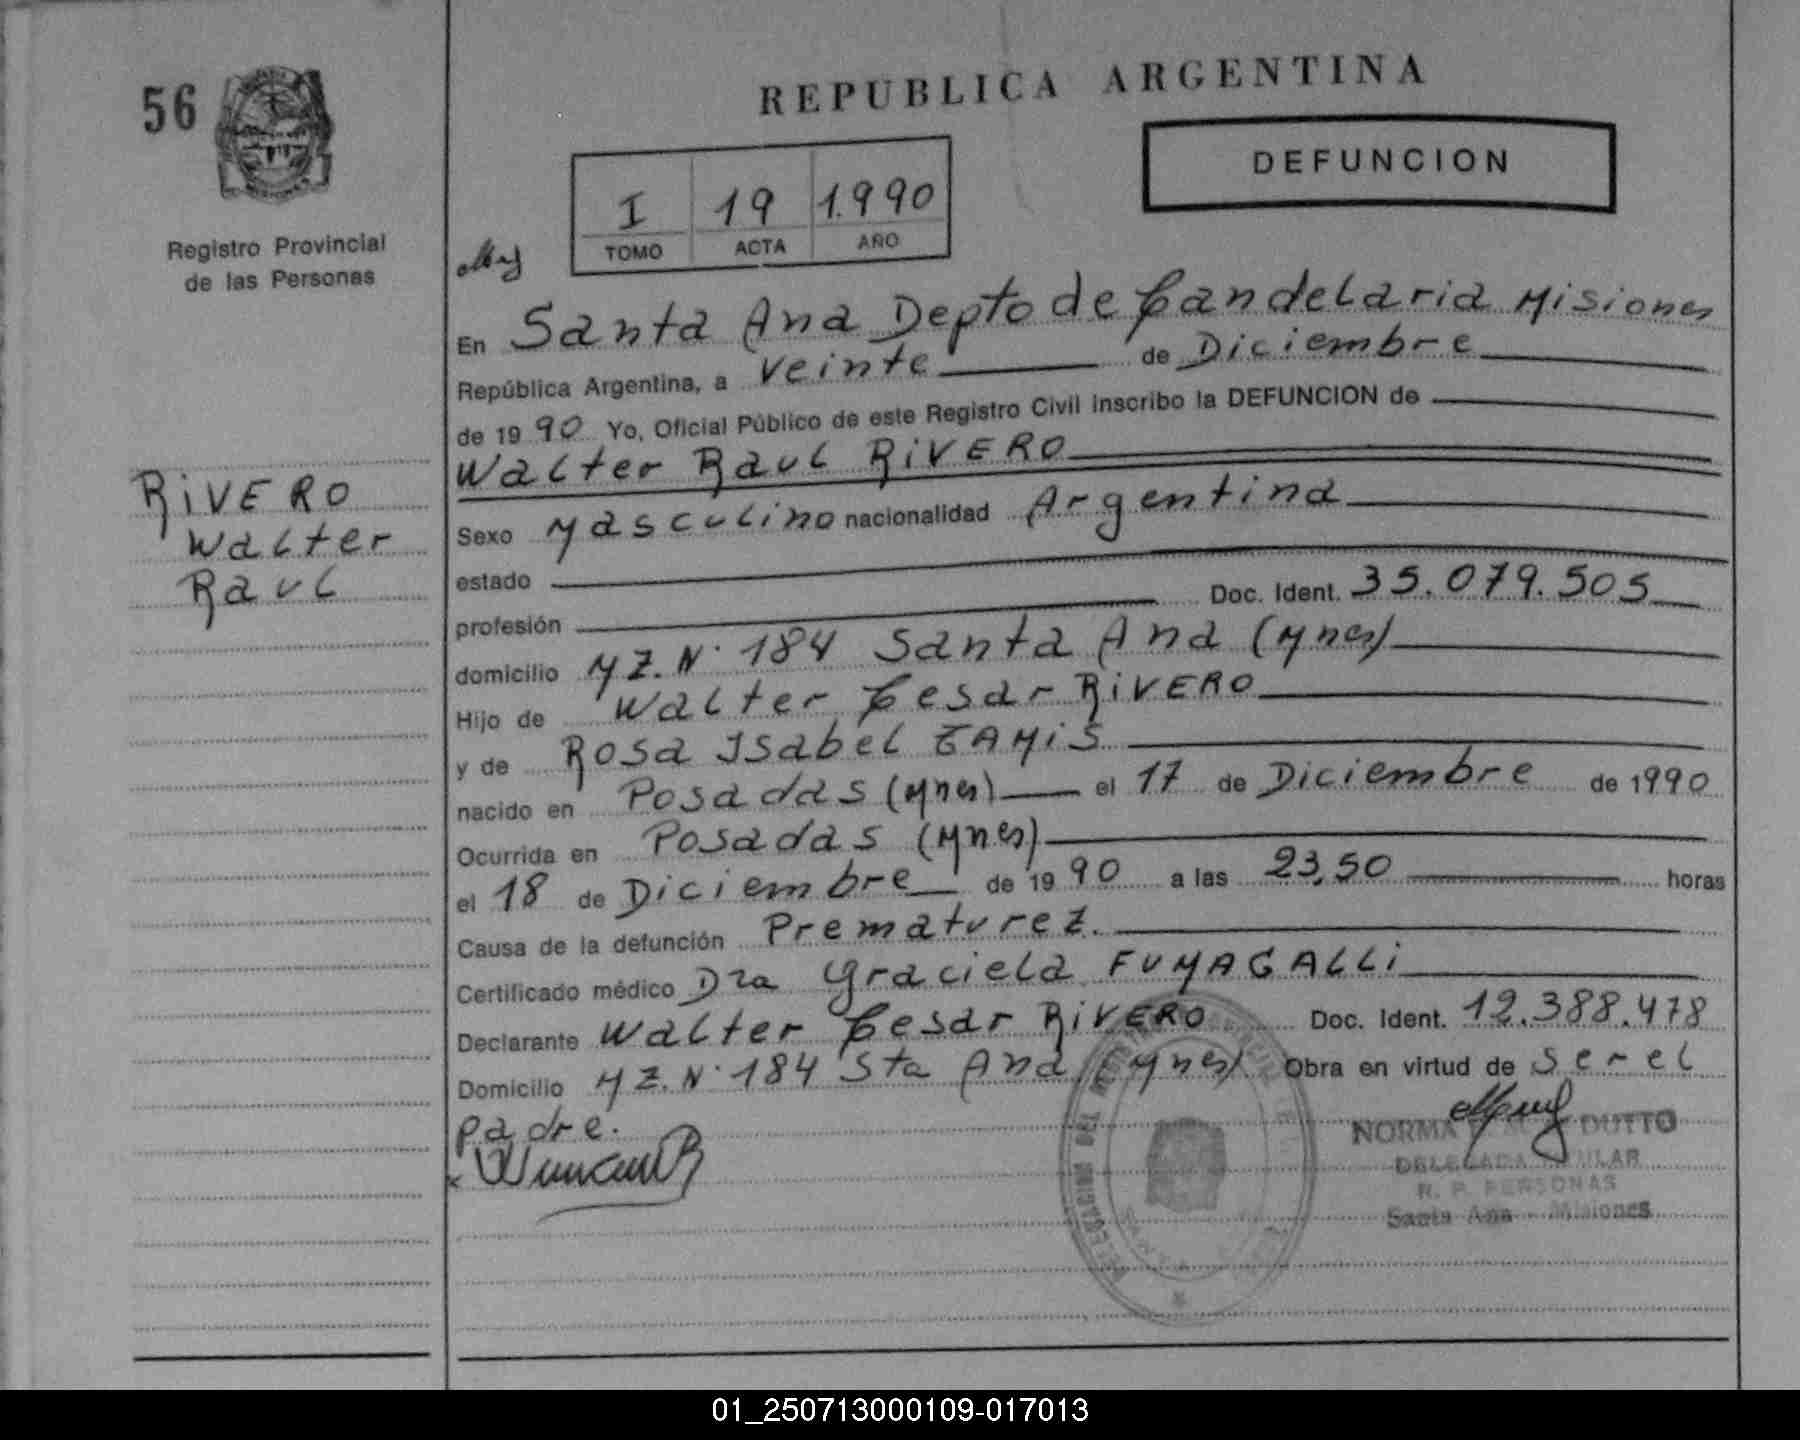 56
REPUBLICA ARGENTINA
DEFUNCION
I 19 1.990
TOMO ACTA AÑO
Registro Provincial
de las Personas
En Santa Ana Depto de Candelaria Misiones
República Argentina, a veinte de Diciembre
de 19 90 Yo, Oficial Público de este Registro Civil inscribo la DEFUNCION de
Walter Raul RiVERO
RiVERO
Walter
Raul
Sexo Masculino nacionalidad Argentina
estado
profesión Doc. Ident. 35.079.505
domicilio MZ. N· 184 Santa Ana (Mnes)
Hijo de Walter Cesar RiVERO
y de Rosa Isabel
nacido en Posadas (Mnes) el 17 de Diciembre de 1990
Ocurrida en Posadas (Mnes)
el 18 de Diciembre de 19 90 a las 23,50 horas
Causa de la defunción Prematurez.
Certificado médico Dra Graciela FUMAGALLi
Declarante Walter Cesar RiVERO Doc. Ident. 12.388.478
Domicilio MZ. N· 184 Sta Ana (Mnes) Obra en virtud de ser el
padre.
NORMA DUTTO
DELEGADA TITULAR
R. P. PERSONAS
Santa Ana - Misiones
01_250713000109-017013